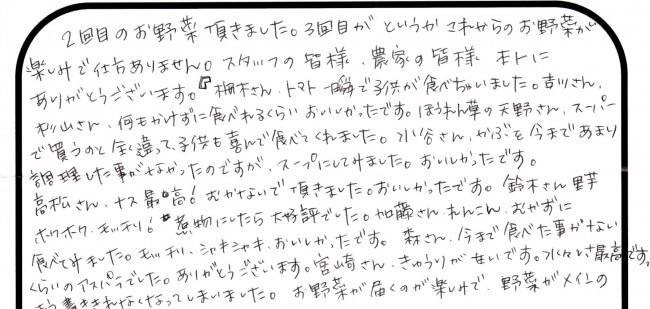 2回目のお野菜頂きました。3回目が というか これからのお野菜が
楽しみで仕方ありません。スタッフの皆様、農家の皆様 本トに
ありがとうございます。『柵木さん、トマト一瞬で子供が食べちゃいました。吉川さん、
杉山さん、何もかけずに食べれるくらい おいしかったです。ほうれん草の天野さん、スーパー
で買うのと全く違って、子供も喜んで食べてくれました。小谷さん、かぶを今まであまり
調理した事がなかったのですが、スープにしてみました。おいしかったです。
高松さん、ナス最高！むかないで頂きました。おいしかったです。鈴木さん 里芋
ホクホク、モッチリ！煮物にしたら大好評でした。加藤さん、れんこん、むかずに
食べてみました。モッチリ、シャキシャキ、おいしかったです。森さん、今まで食べた事がない
くらいのアスパラでした。ありがとうございます。宮崎さん、きゅうりが甘いです。水々しさ最高です。
もう書ききれなくなってしまいました。お野菜が届くのが楽しみで、野菜がメインの